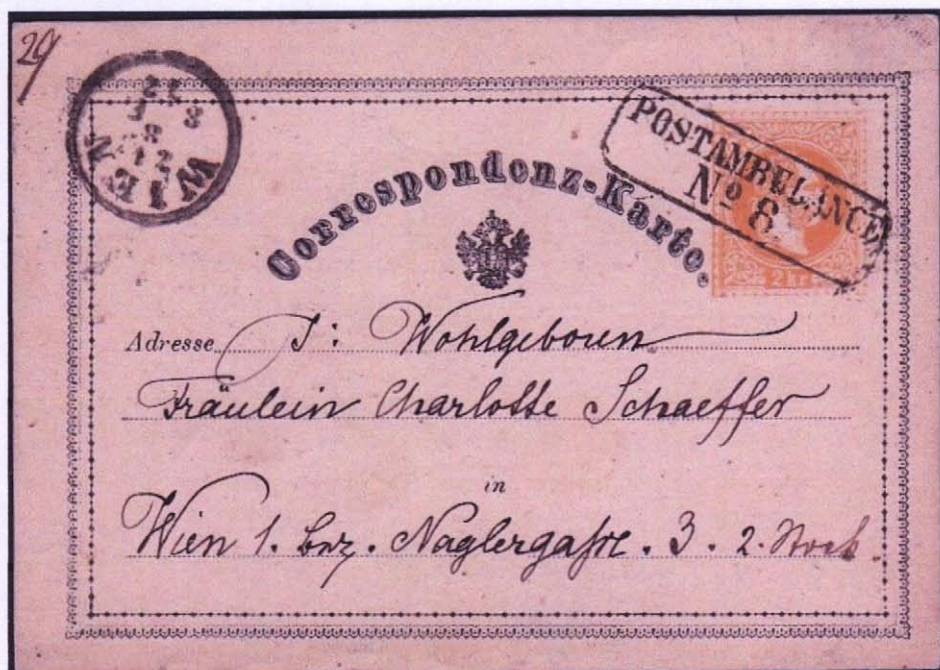 29
WIEN
POSTAMBULANCE
No 8
Correspondenz-Karte.
2 kr
Adresse I: Wohlgeboren
Fräulein Charlotte Schaeffer
in
Wien 1. Bez. Naglergaße. 3. 2. Stock